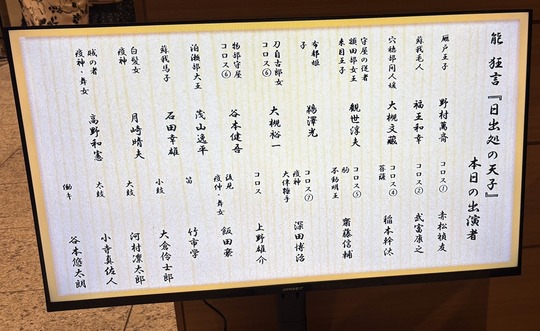 能 狂言『日出処の天子』
本日の出演者
厩戸王子 野村萬斎
蘇我毛人 福王和幸
穴穂部間人媛 大槻文藏
守屋の従者
額田部女王
来目王子
観世淳夫
布都姫
子
鵜澤光
刀自古郎女
コロス⑥
大槻裕一
物部守屋
コロス⑥
谷本健吾
泊瀬部大王 茂山逸平
蘇我馬子 石田幸雄
白髪女
疫神
月崎晴夫
賊の者
疫神・舞女
高野和憲
コロス① 赤松禎友
コロス② 武富康之
コロス④
菩薩
稲本幹汰
コロス⑤
駒
不動明王
齋藤信輔
コロス⑦
疫神
大伴糠手
深田博治
コロス 上野雄介
後見
疫神・舞女
飯田豪
笛 竹市学
小鼓 大倉伶士郎
大鼓 河村凜太郎
太鼓 小寺真佐人
働キ 谷本悠太朗